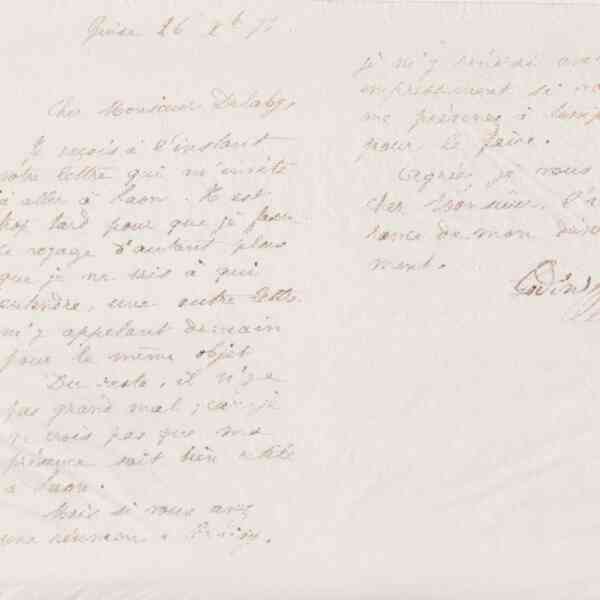 Guise 26 Xb 7
Cher Monsieur Delaby,
Je reçois à l'instant
votre lettre qui m'invite
à aller à Laon. Il est
trop tard pour que je fasse
ce voyage d'autant plus
que je ne sais à qui
entendre, une autre lettre
m'y appelant demain
pour le même objet
Du reste, il n'y a
pas grand mal, car je
ne crois pas que ma
présence soit bien utile
à Laon.
Mais si vous avez
une réunion à
je m'y rendrai avec
empressement si vous
me prévenez à temps
pour le faire.
Agréez, je vous
cher Monsieur, l'as
rance de mon dévoue
ment.
Godin